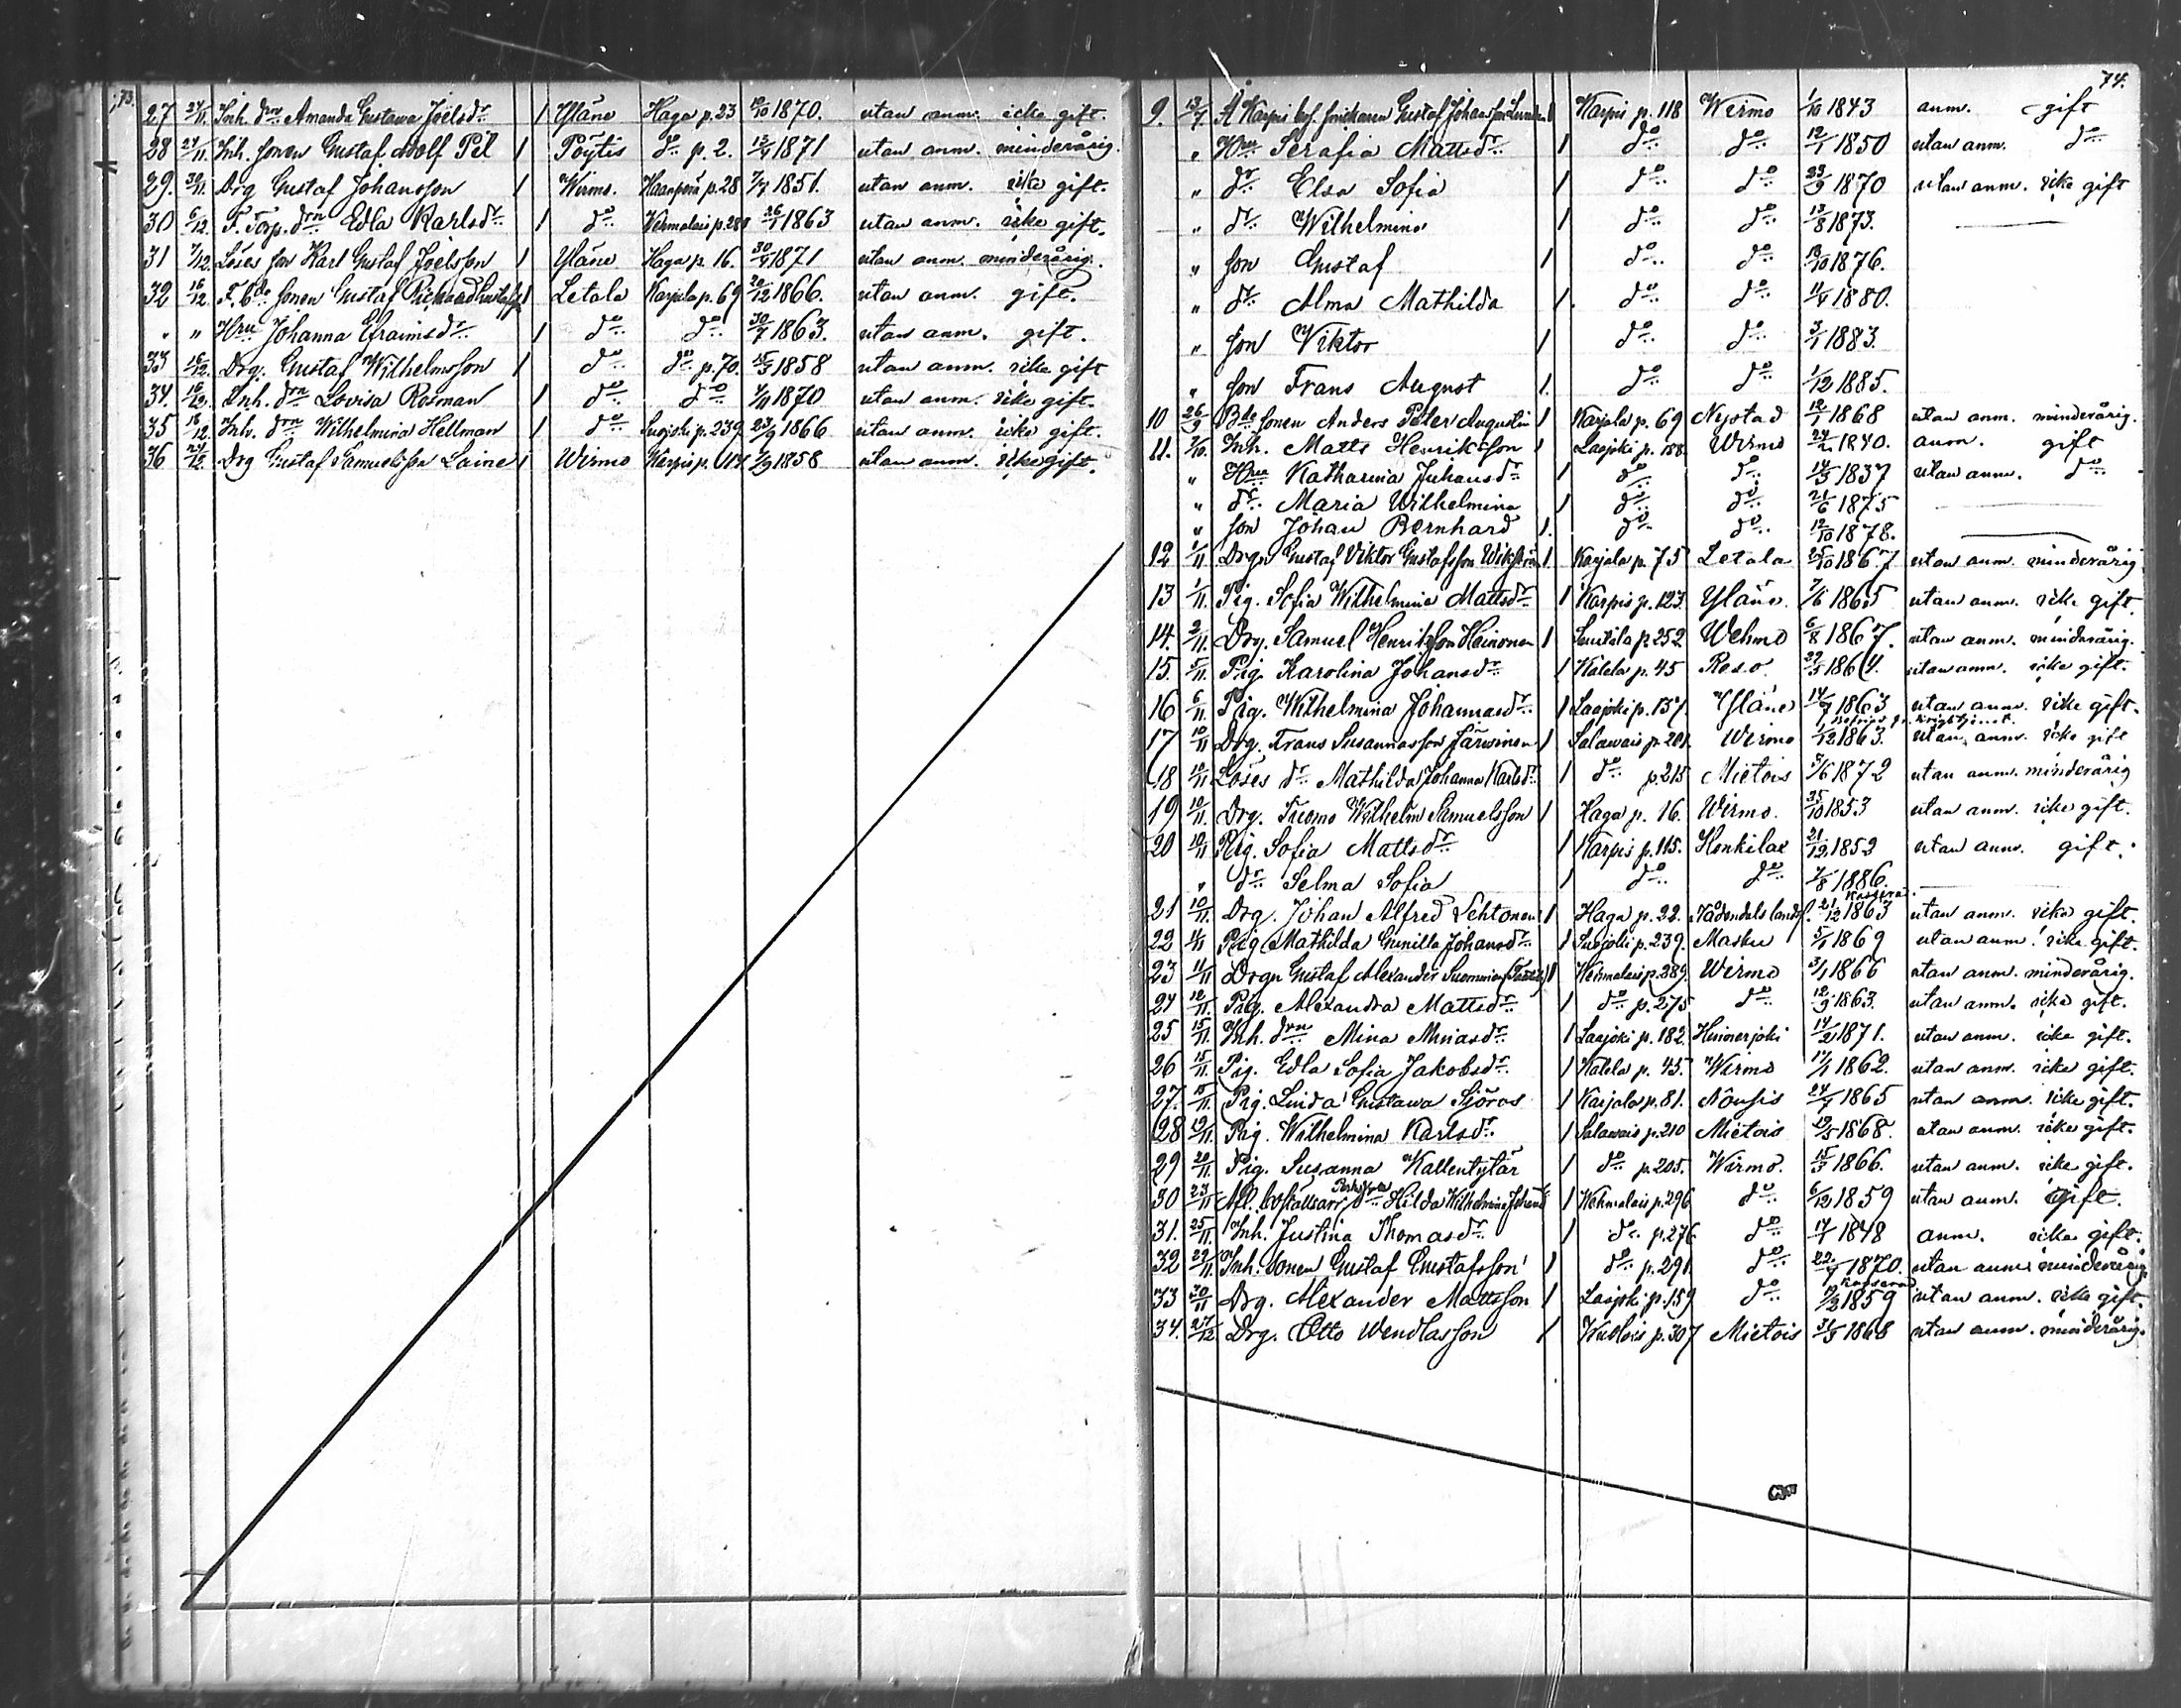 73.
27 24/11. Inh. drn Amanda Gustawa Joelsdr 1 Yläne Haga p. 23 10/10 1870. utan anm. icke gift.
28 27/11. Inh. sonen Gustaf Adolf Pel 1 Pöytis do p. 2. 1871 utan anm. minderårig.
29. 30/11. Drg Gustaf Johansson 1 Wirmo. p. 28 1851. utan anm. icke gift.
30 6/12. F. Torp. drn Edla Karlsdr 1 do 1863 utan anm. icke gift.
31 7/12. Löses son Karl Gustaf Joelsson 1 Yläne Haga p. 16. 1871 utan anm. minderårig.
32 16/12 F. Bde sonen Gustaf 1 Letala Karjala p. 69 20/12 1866. utan anm. gift.
" " Hru Johanna Efraimsdr 1 do do 30/7 1863. utan anm. gift.
33 16/12. Drg. Gustaf Wilhelmsson 1 do do p. 70. 15/3 1858 utan anm. icke gift
34. 16/12. Inh. drn Lovisa Rosman 1 do do 1870 utan anm. icke gift.
35 16/12. Inh. drn Wilhelmina Hellman 1 do Suojoki p. 239 23/9 1866 utan anm. icke gift.
36 Drg Gustaf Samuelsson Laine 1 Wirmo Karpis p. 1858 utan anm. icke gift.
74.
9. 13/7 Å Karpis Gustaf Johansson Karpis p. 118 Wirmo 1/10 1843 anm. gift
" Hru Serafia Mattsdr 1 do do 12/1 1850 utan anm. do
" dr Elsa Sofia 1 do do 23/9 1870 utan anm. icke gift
" dr Wilhelmina 1 do do 13/8 1873.
" son Gustaf 1 do do 1876.
" dr Alma Mathilda 1. do do 1880.
" son Viktor 1 do do 3/1 1883.
" son Frans August 1. do do 1/12 1885.
10 26/9 Bde sonen Anders Peter Augustin 1 Karjala p. 69 Nystad 12/1 1868 utan anm. minderårig.
11. Inh. Matts Henriksson 1 Laajoki p. 188. Wirmo 24/2 1840. anm. gift
" Hru Katharina Juhansdr 1 do do 14/3 1837 utan anm. do
" dr Maria Wilhelmina 1 do do 21/6 1875
" son Johan Bernhard 1. do do 12/10 1878.
12 1/11 Drgn Gustaf Viktor Gustafsson Wikström 1 Karjala p. 75 Letala 25/10 1867 utan anm. minderårig
13 1/11. Pig. Sofia Wilhelmina Mattsdr 1 Karpis p. 123. Yläne. 7/6 1865 utan anm. icke gift.
14. 2/11. Drg. Samuel Henriksson Heinonen 1 p. 252 Wehmo 6/8 1867. utan anm. minderårig.
15. 5/11. Pig. Karolina Johansdr 1 Kalela p. 45 Reso. 1864. utan anm. icke gift.
16 6/11. Pig. Wilhelmina Johannasdr 1 Laajoki p. 137. Yläne 14/7 1863 utan anm. icke gift.
17 10/11 Drg. Frans Susannasson Järwinen 1 Salawais p. 201. Wirmo 1863. utan anm. icke gift
18 10/11 Löses dr Mathilda Johanna Karlsdr 1 do p. 215 Mietois 3/6 1872 utan anm. minderårig
19 10/11. Drg. Tuomo Wilhelm Samuelsson 1 Haga p. 16. Wirmo. 25/10 1853 utan anm. icke gift.
20 10/11 Pig. Sofia Mattsdr 1 Karpis p. 115. Honkilax 21/12 1852 utan anm. gift.
" dr Selma Sofia 1 do do 1886
21 10/11. Drg. Johan Alfred Lehtonen 1 Haga p. 22. Nådendals landsf. 21/12 1863 utan anm. icke gift.
22 11/11 Pig Mathilda Gunilla Johansdr 1 Suojoki p. 239. Masku 5/1 1869 utan anm. icke gift.
23 11/11 Drgn Gustaf Alexander Suominen 1 p. 289. Wirmo 3/1 1866 utan anm. minderårig.
24 12/11. Pig. Alexandra Mattsdr 1 do p. 275 do 12/9 1863. utan anm. icke gift.
25 15/11. Inh. drn Mina Minasdr 1 Laajoki p. 182. Hinnerjoki 14/2 1871. utan anm. icke gift.
26 15/11. Pig. Edla Sofia Jakobsdr 1 Kalela p. 43. Wirmo 1862. utan anm. icke gift.
27. 15/11. Pig. Linda Gustawa Sjöros 1 Karjala p. 81. Nousis 24/7 1865 utan anm. icke gift.
28 19/11. Pig. Wilhelmina Karlsdr 1 Salawais p. 210 Mietois 19/5 1868. utan anm. icke gift.
29 20/11. Pig. Susanna Kallentytär 1 do p. 205. Wirmo. 15/3 1866. utan anm. icke gift.
30 23/11 Afl. Hilda Wilhelmina 1 p. 296 do 6/12 1859 utan anm. gift.
31. 25/11. Inh. Justina Thomasdr 1 do p. 276 do 1848 anm. icke gift.
32 29/11. Inh. sonen Gustaf Gustafsson 1 do p. 291. do 1870. utan anm. minderårig.
33 30/11 Drg. Alexander Mattsson 1 Laajoki p. 159 do 1859 utan anm. icke gift.
34. 27/12 Drg. Otto Wendlasson 1 p. 307 Mietois 31/5 1868 utan anm. minderårig.